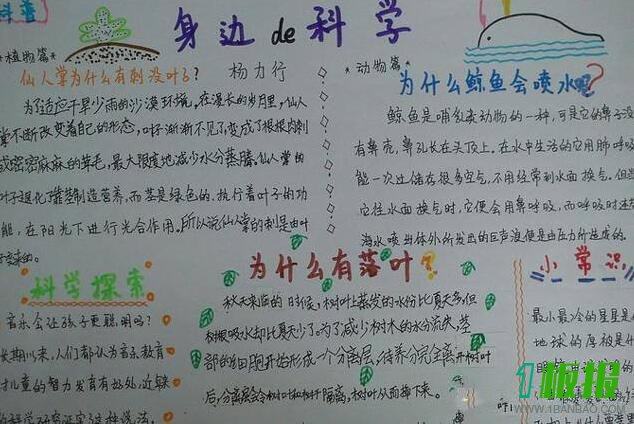 科普
身边de科学
*植物篇*
仙人掌为什么有刺没叶子?
杨力行
为了适应干旱少雨的沙漠环境,在漫长的岁月里,仙人
掌不断改变着自己的形态,叶子渐渐不见了变成了根根肉刺
或密密麻麻的茸毛,最大限度地减少水分蒸腾。仙人掌的
叶子退化
制造营养,而茎是绿色的,执行着叶子的功
能,在阳光下进行光合作用。所以说仙人掌的刺是由叶
*动物篇*
为什么鲸鱼会喷水呢?
鲸鱼是哺乳类动物的一种,可是它的鼻子没
有鼻壳,鼻孔长在头顶上。在水中生活的它用肺呼吸
能一次过储存很多空气,不用经常到水面换气。但当
它往水面换气时,它便会用鼻呼吸,而呼吸时还
海水喷出体外所发出的巨声没便是由压力所造成的。
科学探索
音乐会让孩子更聪明吗?
长期以来,人们都认为音乐教育
对儿童的智力发育有好处,近
为什么有落叶?
秋天来临的时候,树叶上蒸发的水份比夏天多,但
树根吸水却比夏天少了。为了减少树木的水分流失,茎
部的细胞开始形成一个分离层,待养分完全离开树叶
后,分离层会令树叶和树干隔离,树叶从而掉下来。
小常识
最小最冷的星星是
地球的厚极是
1板报
WWW.1BANBAO.COM